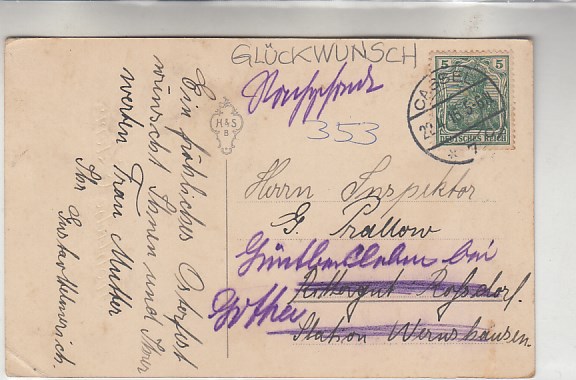 GLÜCKWUNSCH
353
5 5
DEUTSCHES REICH
CASSEL
* 7
H & S
B
Ein fröhliches Osterfest
wünscht Ihnen und Ihrer
werten Frau Mutter
Ihr
Herrn Inspektor
G. Prallow
Günthersleben bei
Rittergut Roßdorf.
Gotha
Station Wernshausen.